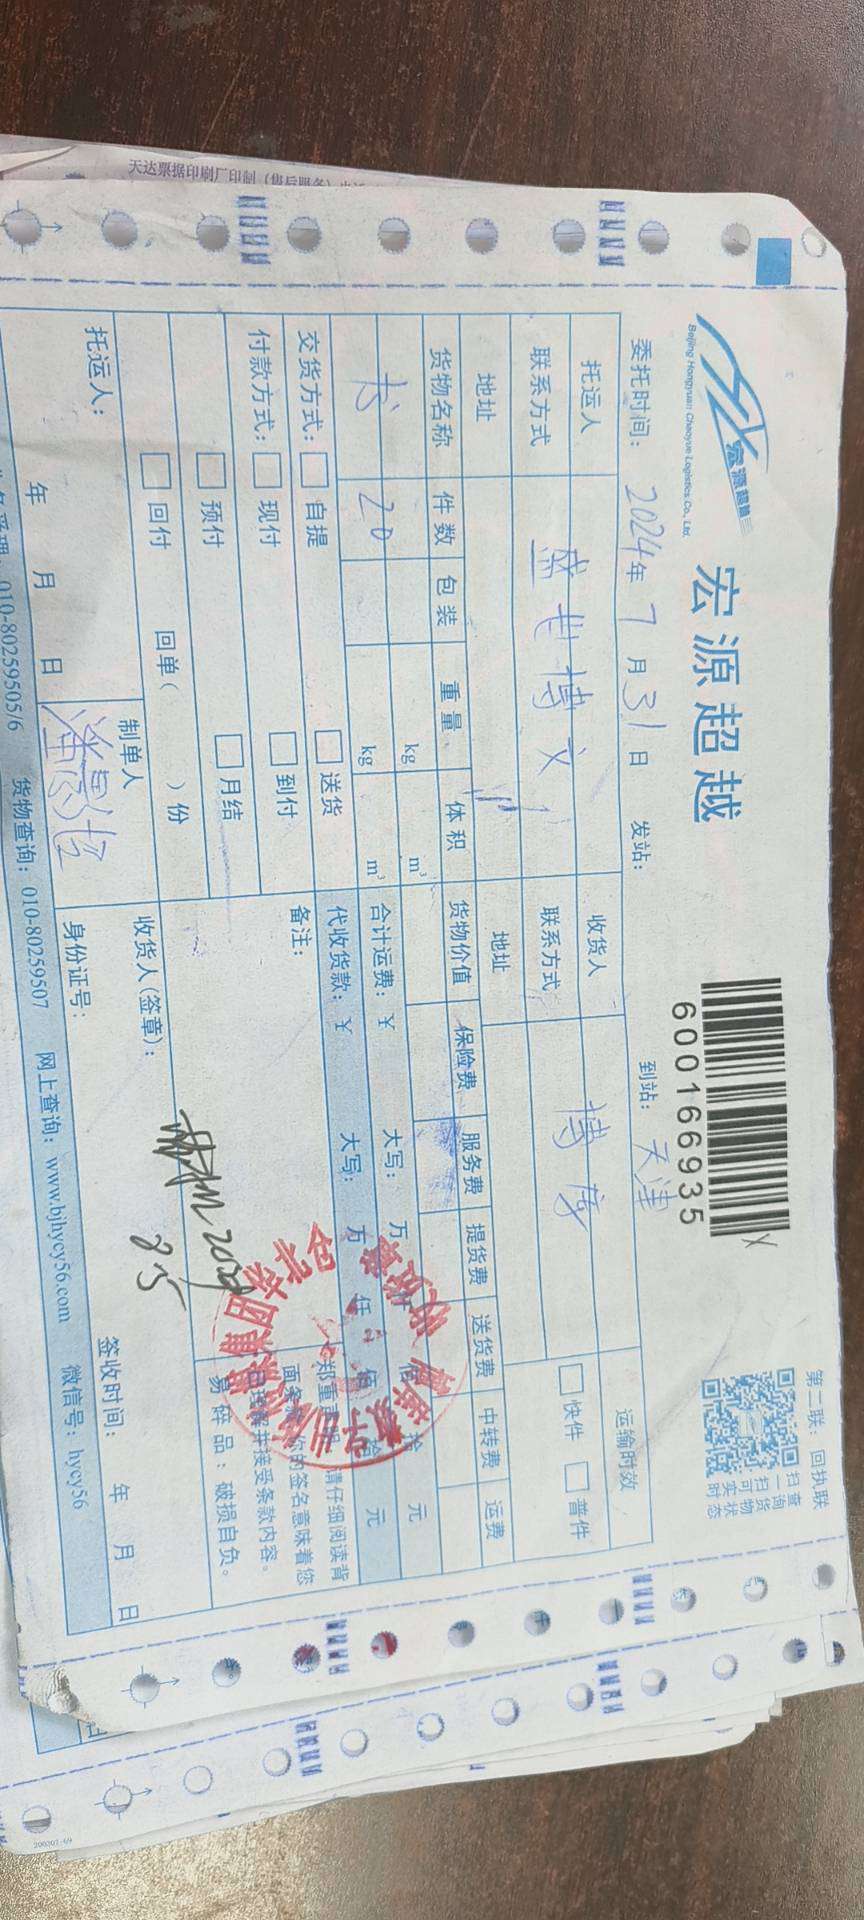 天达票据印刷厂印制
宏源超越
Beijing Hongyuan Chaoyue Logistics Co., Ltd.
宏源超越
6001669935
第二联：回执联
扫一扫可实时
查询货物状态
委托时间：2024年7月31日 发站： 到站：天津
托运人 收货人 运输时效
联系方式 盛世博文 联系方式 博茂 快件 普件
地址 地址
货物名称 件数 包装 重量 体积 货物价值 保险费 服务费 提货费 送货费 中转费 运费
kg m³
书 20 kg m³ 合计运费：￥ 大写： 万 仟 佰 拾 元
交货方式： 自提 送货 代收货款：￥ 大写： 万 仟 佰 拾 元
付款方式： 现付 到付 备注：
预付 月结
回付 回单（ ）份
郑重声明：请仔细阅读背
面条款，您的签名意味着您
已理解并接受条款内容。
易碎品：破损自负。
托运人： 制单人 收货人(签章)：
8.5
年 月 日 身份证号： 签收时间： 年 月 日
010-80259505/6 货物查询：010-80259507 网上查询：www.bjhycy56.com 微信号：hycy56